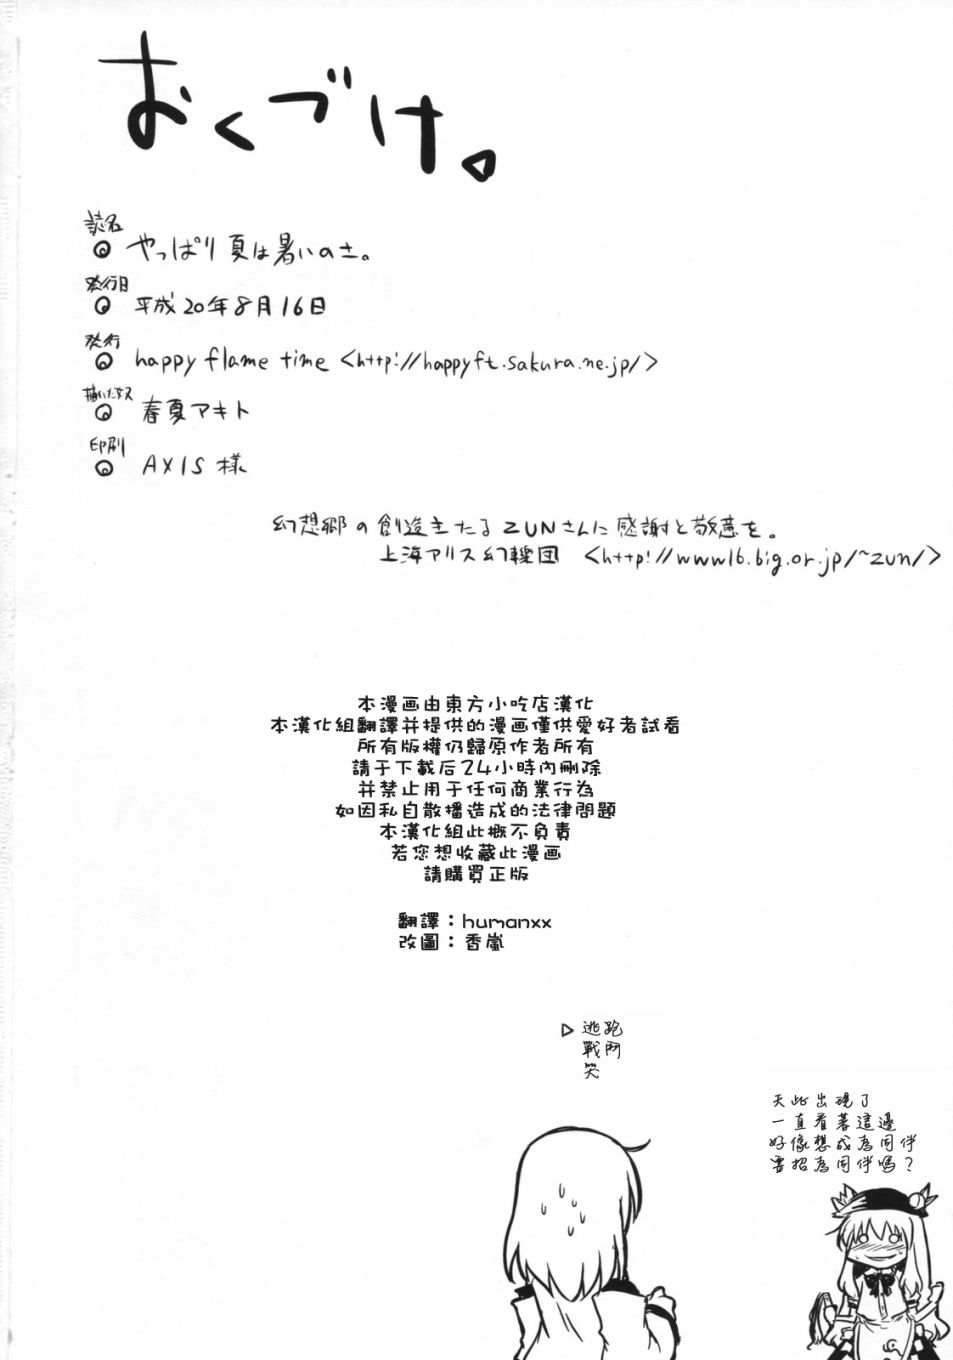 おくづけ。
誌名
◎ やっぱり夏は暑いのさ。
発行日
◎ 平成20年8月16日
発行
◎ happy flame time <http://happyft.sakura.ne.jp/>
描いた奴
◎ 春夏アキト
印刷
◎ AXIS 様
幻想郷の創造主たるZUNさんに感謝と敬意を。
上海アリス幻樂団 <http://www16.big.or.jp/~zun/>
本漫画由東方小吃店漢化
本漢化組翻譯并提供的漫画僅供愛好者試看
所有版權仍歸原作者所有
請于下載后24小時內刪除
并禁止用于任何商業行為
如因私自散播造成的法律問題
本漢化組此概不負責
若您想收藏此漫画
請購買正版
翻譯：humanxx
改圖：香嵐
▷ 逃跑
戰鬥
笑
天此出現了
一直看著這邊
好像想成為同伴
要招為同伴嗎？